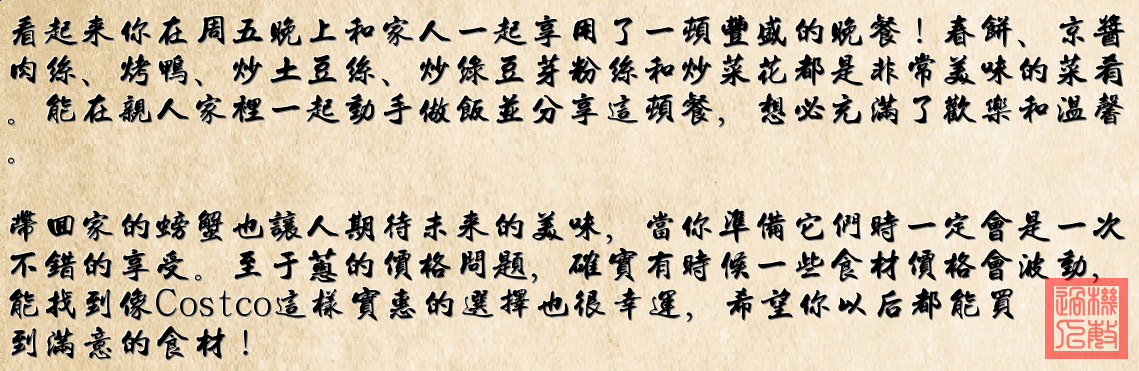 看起来你在周五晚上和家人一起享用了一頓豐盛的晚餐！春餅、京醬
肉絲、烤鴨、炒土豆絲、炒綠豆芽粉絲和炒菜花都是非常美味的菜肴
。能在親人家裡一起動手做飯並分享這頓餐，想必充滿了歡樂和溫馨
。
帶回家的螃蟹也讓人期待未来的美味，當你準備它們時一定會是一次
不錯的享受。至于蔥的價格問題，確實有時候一些食材價格會波動，
能找到像Costco這樣實惠的選擇也很幸運，希望你以后都能買
到滿意的食材！